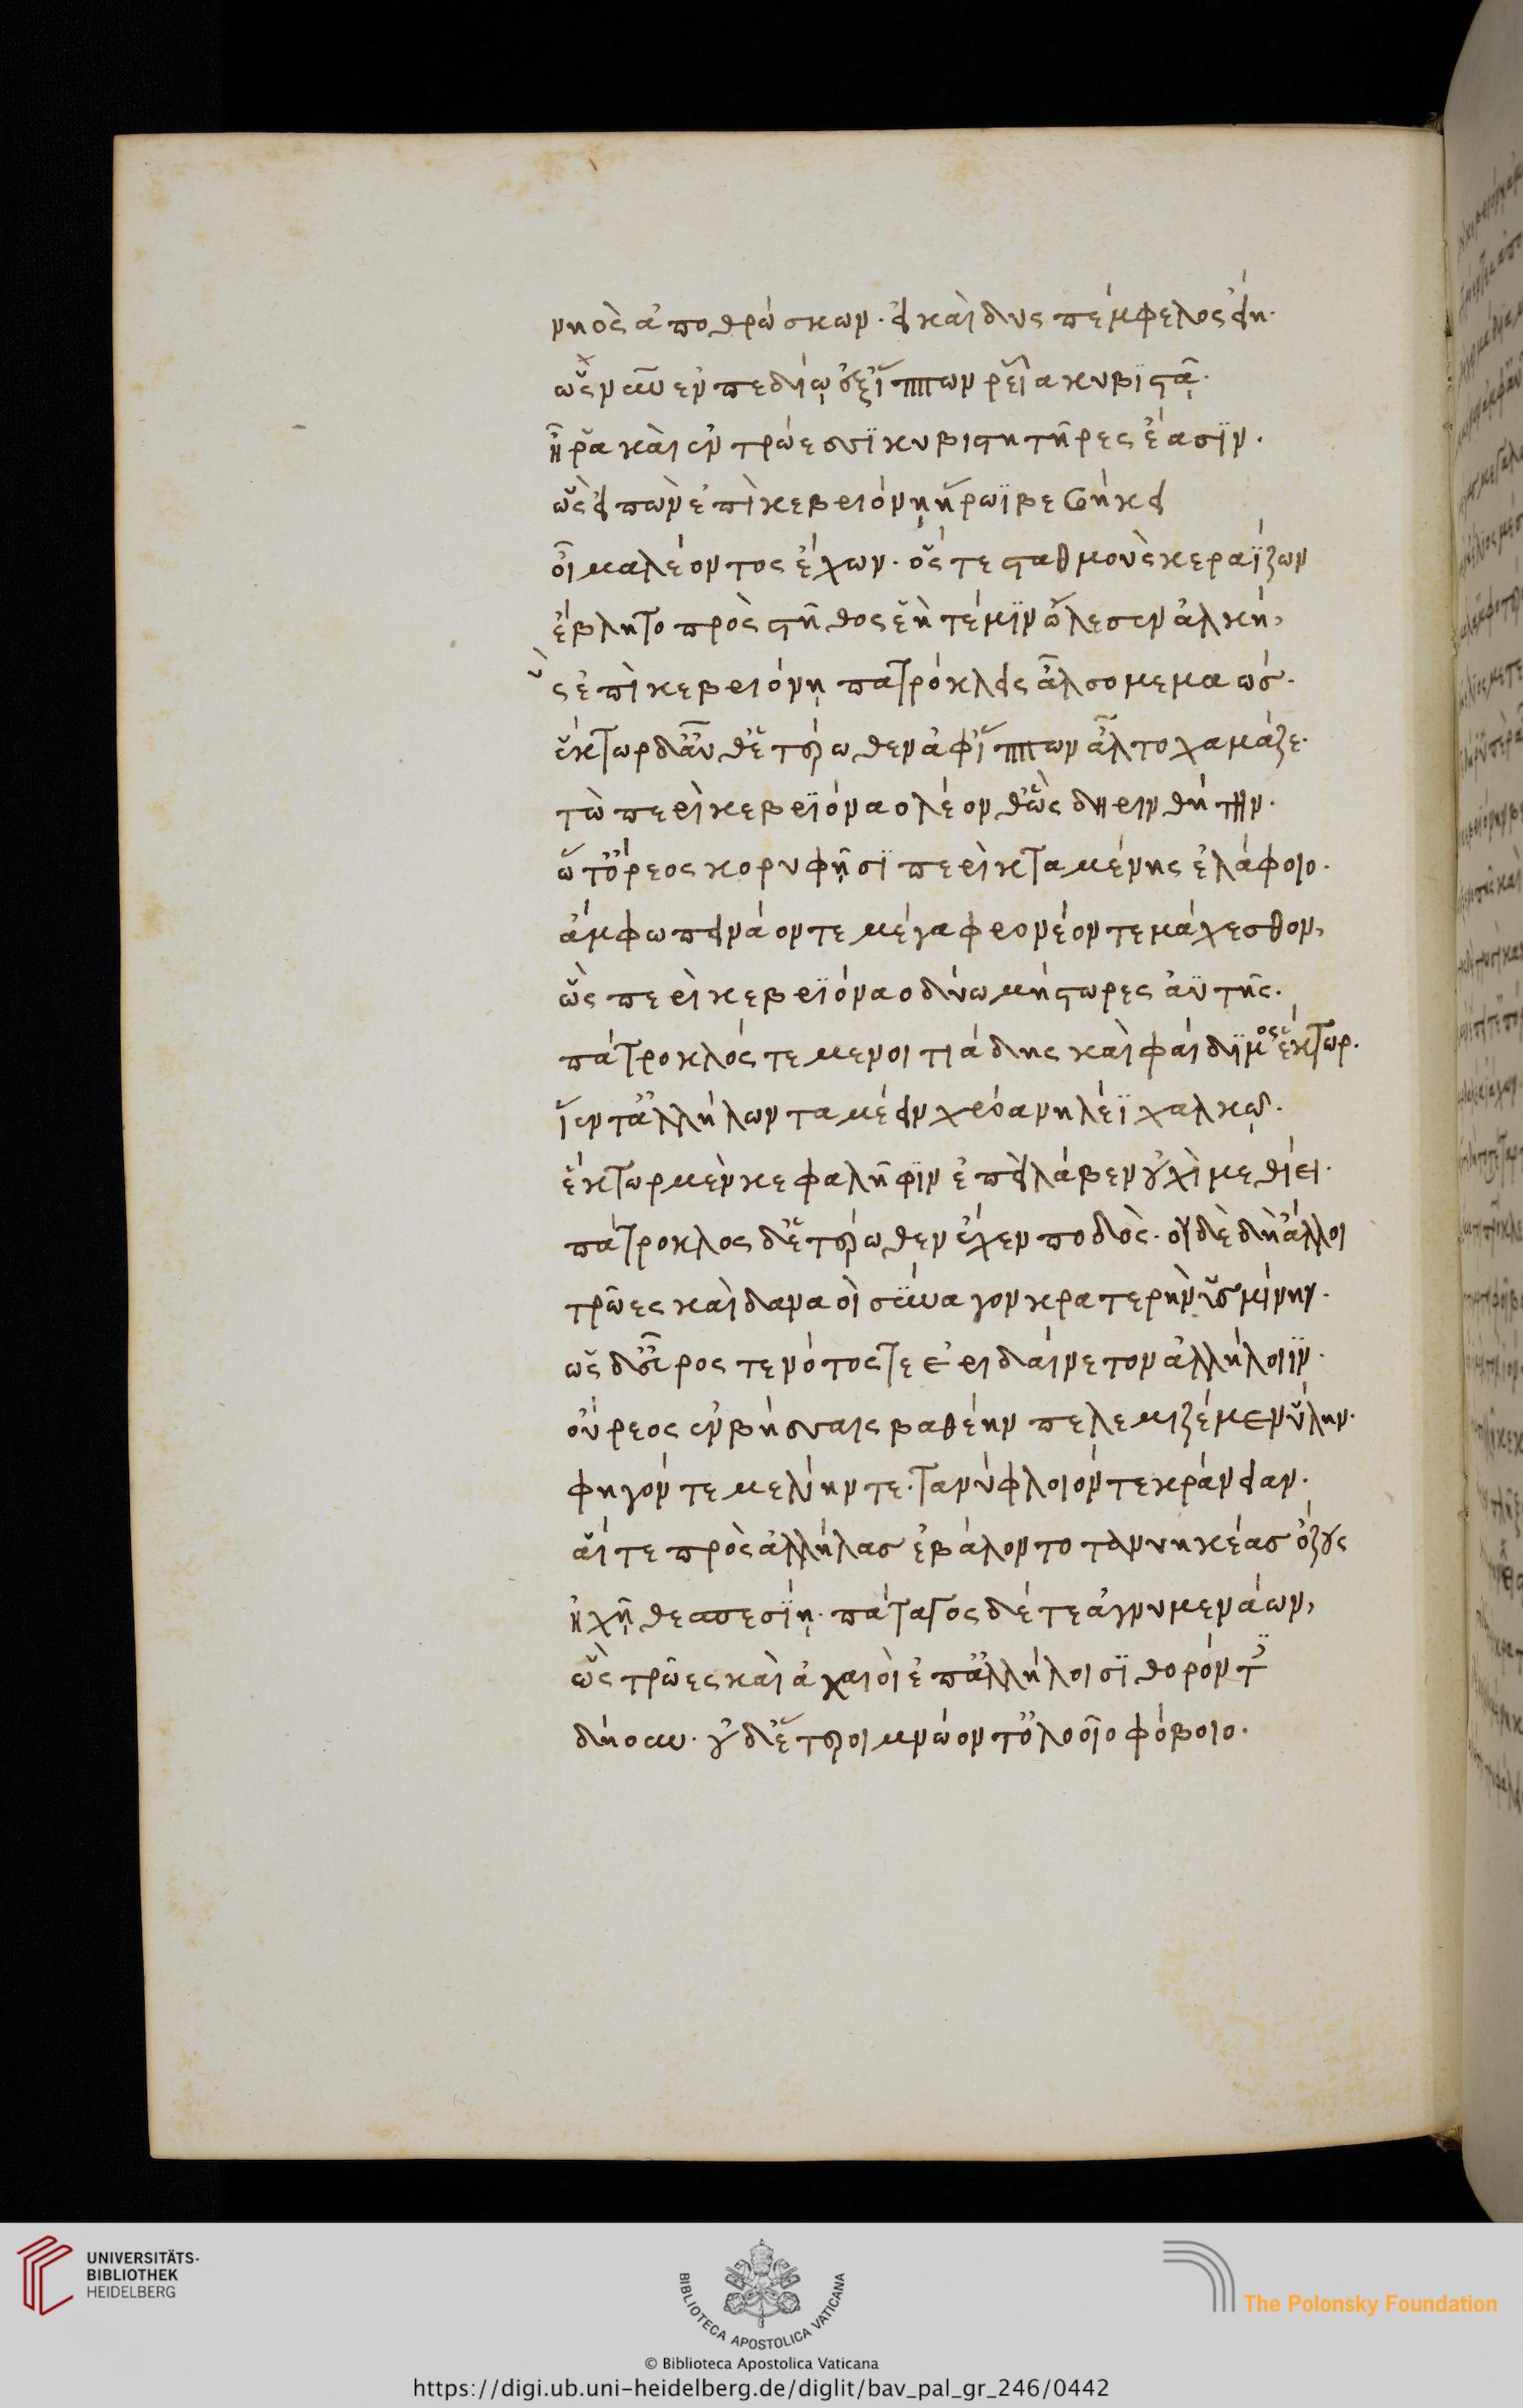 νηὸς ἀποθρώσκων. εἰ καὶ δυς πέμφελος εἴη.
ὡς νῦν ἐν πεδίῳ ἐξ ἵππων ῥεῖα κυβιστᾷ.
ἦ ῥα καὶ ἐν τρώεσσι κυβιστητῆρες ἔασιν.
ὣς εἰπὼν ἐπὶ κεβριόνῃ ἥρωϊ βεβήκει
οἶμα λέοντος ἔχων. ὅς τε σταθμοὺς κεραΐζων
ἔβλητο πρὸς στῆθος ἑή τέ μιν ὤλεσεν ἀλκή,
ὣς ἐπὶ κεβριόνῃ πατρόκλεις ἆλσο μεμαώς.
ἕκτωρ δ' αὖθ' ἑτέρωθεν ἀφ' ἵππων ἆλτο χαμάζε.
τὼ περὶ κεβριόναο λέονθ' ὣς δηρινθήτην.
ὥτ' ὄρεος κορυφῇσι περὶ κταμένης ἐλάφοιο.
ἄμφω πεινάοντε μέγα φρονέοντε μάχεσθον,
ὣς περὶ κεβριόναο δύω μήστωρες ἀϋτῆς.
πάτροκλός τε μενοιτιάδης καὶ φαίδιμος ἕκτωρ.
ἵεντ' ἀλλήλων ταμέειν χρόα νηλέϊ χαλκῷ.
ἕκτωρ μὲν κεφαλῆφιν ἐπεὶ λάβεν οὐχὶ μεθίει.
πάτροκλος δ' ἑτέρωθεν ἔχεν ποδὸς. οἱ δὲ δὴ ἄλλοι
τρῶες καὶ δαναοὶ σύναγον κρατερὴν ὑσμίνην.
ὡς δ' εὖρος τε νότος τε ἐριδαίνετον ἀλλήλοιϊν.
οὔρεος ἐν βήσσαις βαθέην πελεμιζέμεν ὕλην.
φηγόν τε μελίην τε. τανύφλοιόν τε κράνειαν.
αἵ τε πρὸς ἀλλήλας ἐβάλοντο τανυηκέας ὄζους
ἠχῇ θεσπεσίῃ. πάταγος δέ τε ἀγνυμενάων,
ὣς τρῶες καὶ ἀχαιοὶ ἐπ' ἀλλήλοισι θορόντες
δῄουν. οὐδ' ἕτεροι μνώοντ' ὀλοοῖο φόβοιο.
UNIVERSITÄTS-
BIBLIOTHEK
HEIDELBERG
BIBLIOTECA APOSTOLICA VATICANA
The Polonsky Foundation
© Biblioteca Apostolica Vaticana
https://digi.ub.uni-heidelberg.de/diglit/bav_pal_gr_246/0442